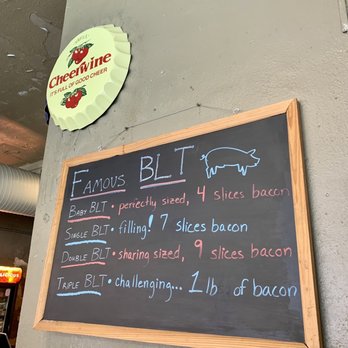 Cheerwine
IT'S FULL OF GOOD CHEER
FAMOUS BLT
BABY BLT • perfectly sized, 4 slices bacon
SINGLE BLT • filling! 7 slices bacon
DOUBLE BLT • sharing sized, 9 slices bacon
TRIPLE BLT • challenging... 1 lb of bacon